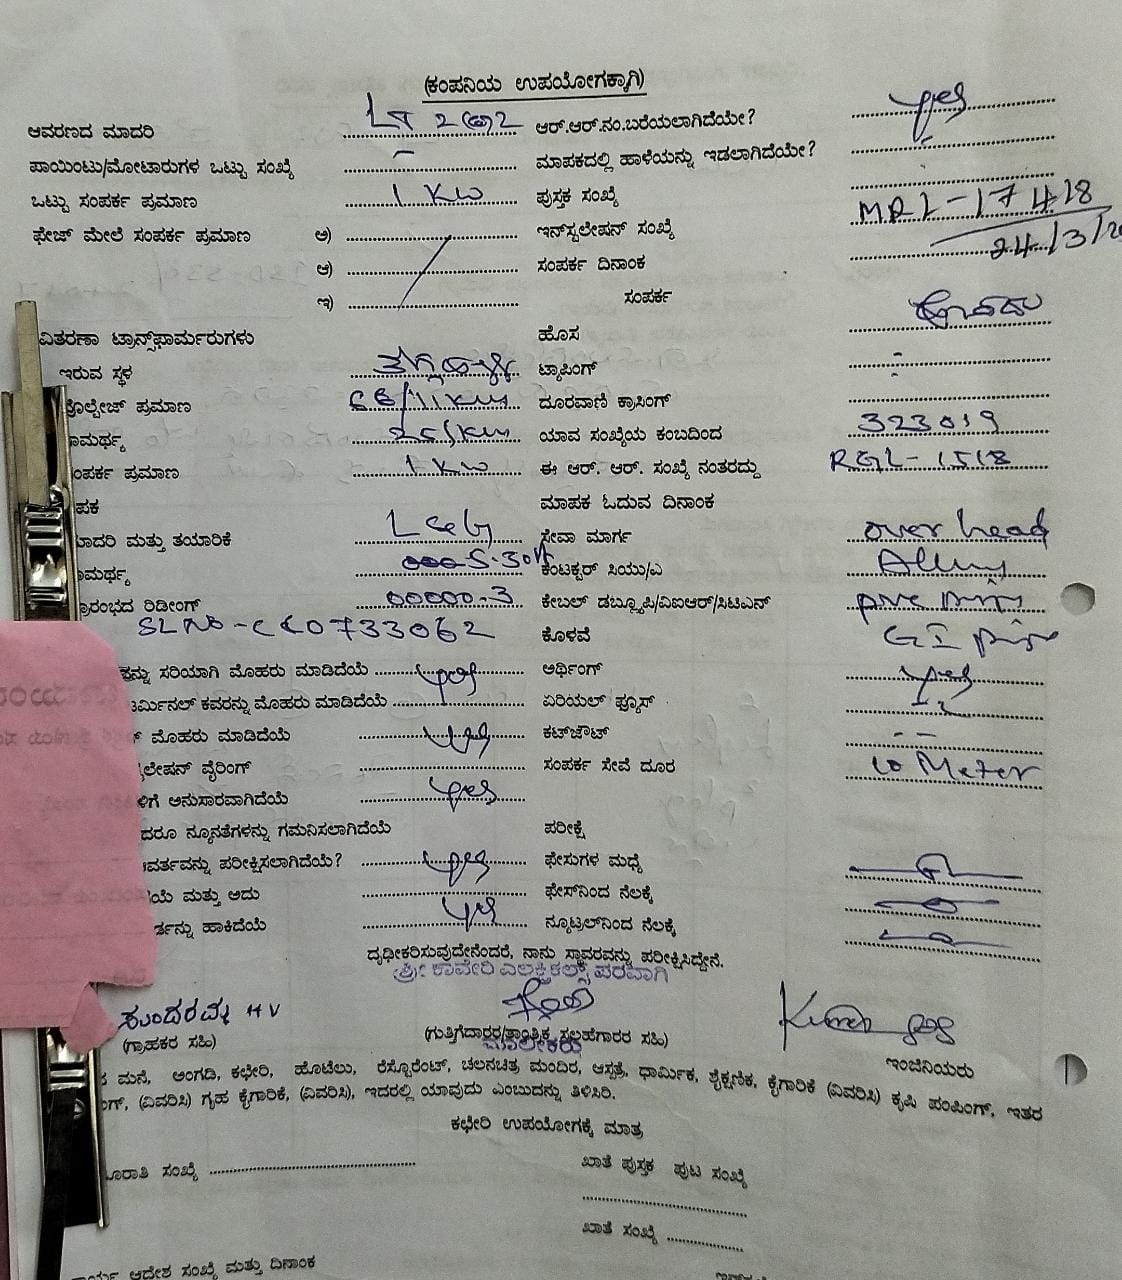 (ಕಂಪನಿಯ ಉಪಯೋಗಕ್ಕಾಗಿ)
ಆವರಣದ ಮಾದರಿ LT 2 2 ಆರ್.ಆರ್.ನಂ.ಬರೆಯಲಾಗಿದೆಯೇ? yes
ಪಾಯಿಂಟು/ಮೋಟಾರುಗಳ ಒಟ್ಟು ಸಂಖ್ಯೆ - ಮಾಪಕದಲ್ಲಿ ಹಾಳೆಯನ್ನು ಇಡಲಾಗಿದೆಯೇ? -
ಒಟ್ಟು ಸಂಪರ್ಕ ಪ್ರಮಾಣ 1 KW ಪುಸ್ತಕ ಸಂಖ್ಯೆ
ಫೇಜ್ ಮೇಲೆ ಸಂಪರ್ಕ ಪ್ರಮಾಣ ಅ) ಇನ್‌ಸ್ಟಲೇಷನ್ ಸಂಖ್ಯೆ MRL-17418
ಆ) ಸಂಪರ್ಕ ದಿನಾಂಕ 24/3/2
ಇ) ಸಂಪರ್ಕ
ವಿತರಣಾ ಟ್ರಾನ್ಸ್‌ಫಾರ್ಮರುಗಳು ಹೊಸ
ಇರುವ ಸ್ಥಳ ಟ್ಯಾಪಿಂಗ್ -
ವೋಲ್ಟೇಜ್ ಪ್ರಮಾಣ 66/11 ದೂರವಾಣಿ ಕ್ರಾಸಿಂಗ್
ಾಮರ್ಥ್ಯ 25 ಯಾವ ಸಂಖ್ಯೆಯ ಕಂಬದಿಂದ 323019
ಂಪರ್ಕ ಪ್ರಮಾಣ 1 KW ಈ ಆರ್. ಆರ್. ಸಂಖ್ಯೆ ನಂತರದ್ದು RGL-1518
ಪಕ ಮಾಪಕ ಓದುವ ದಿನಾಂಕ
ಾದರಿ ಮತ್ತು ತಯಾರಿಕೆ L&G ಸೇವಾ ಮಾರ್ಗ over head
ಾಮರ್ಥ್ಯ 5-30A ಕಂಟಕ್ಟರ್ ಸಿಯು/ಎ Alluy
್ರಾರಂಭದ ರಿಡೀಂಗ್ 00000.3 ಕೇಬಲ್ ಡಬ್ಲ್ಯೂಪಿ/ವಿಐಆರ್/ಸಿಟಿಎಸ್ pvc
SL No - CC0733062 ಕೊಳವೆ GI pipe
ತನ್ನು ಸರಿಯಾಗಿ ಮೊಹರು ಮಾಡಿದೆಯೆ yes ಅರ್ಥಿಂಗ್ yes
ಟರ್ಮಿನಲ್ ಕವರನ್ನು ಮೊಹರು ಮಾಡಿದೆಯೆ ಏರಿಯಲ್ ಫ್ಯೂಸ್
ಮೊಹರು ಮಾಡಿದೆಯೆ yes ಕಟ್‌ಔಟ್ - -
ಲೇಷನ್ ವೈರಿಂಗ್ ಸಂಪರ್ಕ ಸೇವೆ ದೂರ 10 Meter
ಳಿಗೆ ಅನುಸಾರವಾಗಿದೆಯೆ yes
ದರೂ ನ್ಯೂನತೆಗಳನ್ನು ಗಮನಿಸಲಾಗಿದೆಯೆ ಪರೀಕ್ಷೆ
ಾವರ್ತವನ್ನು ಪರೀಕ್ಷಿಸಲಾಗಿದೆಯೆ? yes ಫೇಸುಗಳ ಮಧ್ಯೆ
ಯೆ ಮತ್ತು ಅದು ಫೇಸ್‌ನಿಂದ ನೆಲಕ್ಕೆ
ರ್ಡನ್ನು ಹಾಕಿದೆಯೆ yes ನ್ಯೂಟ್ರಲ್‌ನಿಂದ ನೆಲಕ್ಕೆ
ದೃಢೀಕರಿಸುವುದೇನೆಂದರೆ, ನಾನು ಸ್ಥಾವರವನ್ನು ಪರೀಕ್ಷಿಸಿದ್ದೇನೆ.
ಶ್ರೀ ಕಾವೇರಿ ಎಲಕ್ಟ್ರಿಕಲ್ಸ್ ಪರವಾಗಿ
ಸುಂದರಮ್ಮ HV
(ಗ್ರಾಹಕರ ಸಹಿ) (ಗುತ್ತಿಗೆದಾರರ/ತಾಂತ್ರಿಕ ಸಲಹೆಗಾರರ ಸಹಿ) ಇಂಜಿನಿಯರು
ಮಾಲೀಕರು
ಮನೆ, ಅಂಗಡಿ, ಕಛೇರಿ, ಹೊಟೆಲು, ರೆಸ್ಟೊರೆಂಟ್, ಚಲನಚಿತ್ರ ಮಂದಿರ, ಆಸ್ಪತ್ರೆ, ಧಾರ್ಮಿಕ, ಶೈಕ್ಷಣಿಕ, ಕೈಗಾರಿಕೆ (ವಿವರಿಸಿ) ಕೃಷಿ ಪಂಪಿಂಗ್, ಇತರ
ಂಗ್, (ವಿವರಿಸಿ) ಗೃಹ ಕೈಗಾರಿಕೆ, (ವಿವರಿಸಿ), ಇದರಲ್ಲಿ ಯಾವುದು ಎಂಬುದನ್ನು ತಿಳಿಸಿರಿ.
ಕಛೇರಿ ಉಪಯೋಗಕ್ಕೆ ಮಾತ್ರ
ೂರಾತಿ ಸಂಖ್ಯೆ ಖಾತೆ ಪುಸ್ತಕ ಪುಟ ಸಂಖ್ಯೆ
ಖಾತೆ ಸಂಖ್ಯೆ
ಆದೇಶ ಸಂಖ್ಯೆ ಮತ್ತು ದಿನಾಂಕ